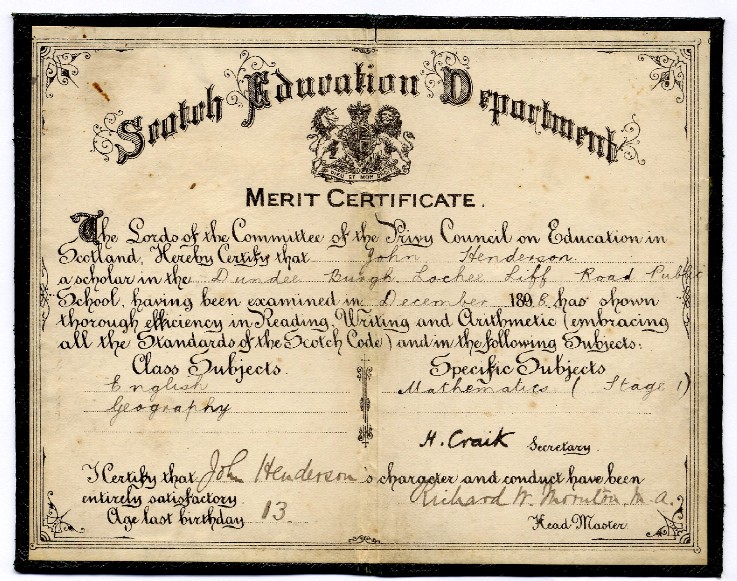 Scotch Education Department
DIEU ET MON DROIT
MERIT CERTIFICATE.
The Lords of the Committee of the Privy Council on Education in
Scotland, Hereby Certify that John Henderson
a scholar in the Dundee Burgh Lochee Liff Road Public
School, having been examined in December 1898 has shown
thorough efficiency in Reading, Writing and Arithmetic (embracing
all the Standards of the Scotch Code) and in the following Subjects:
Class Subjects. Specific Subjects
English Mathematics (Stage 1)
Geography
H. Craik Secretary.
I Certify that John Henderson's character and conduct have been
entirely satisfactory.
Richard W. M.A.
Age last birthday 13 Head Master